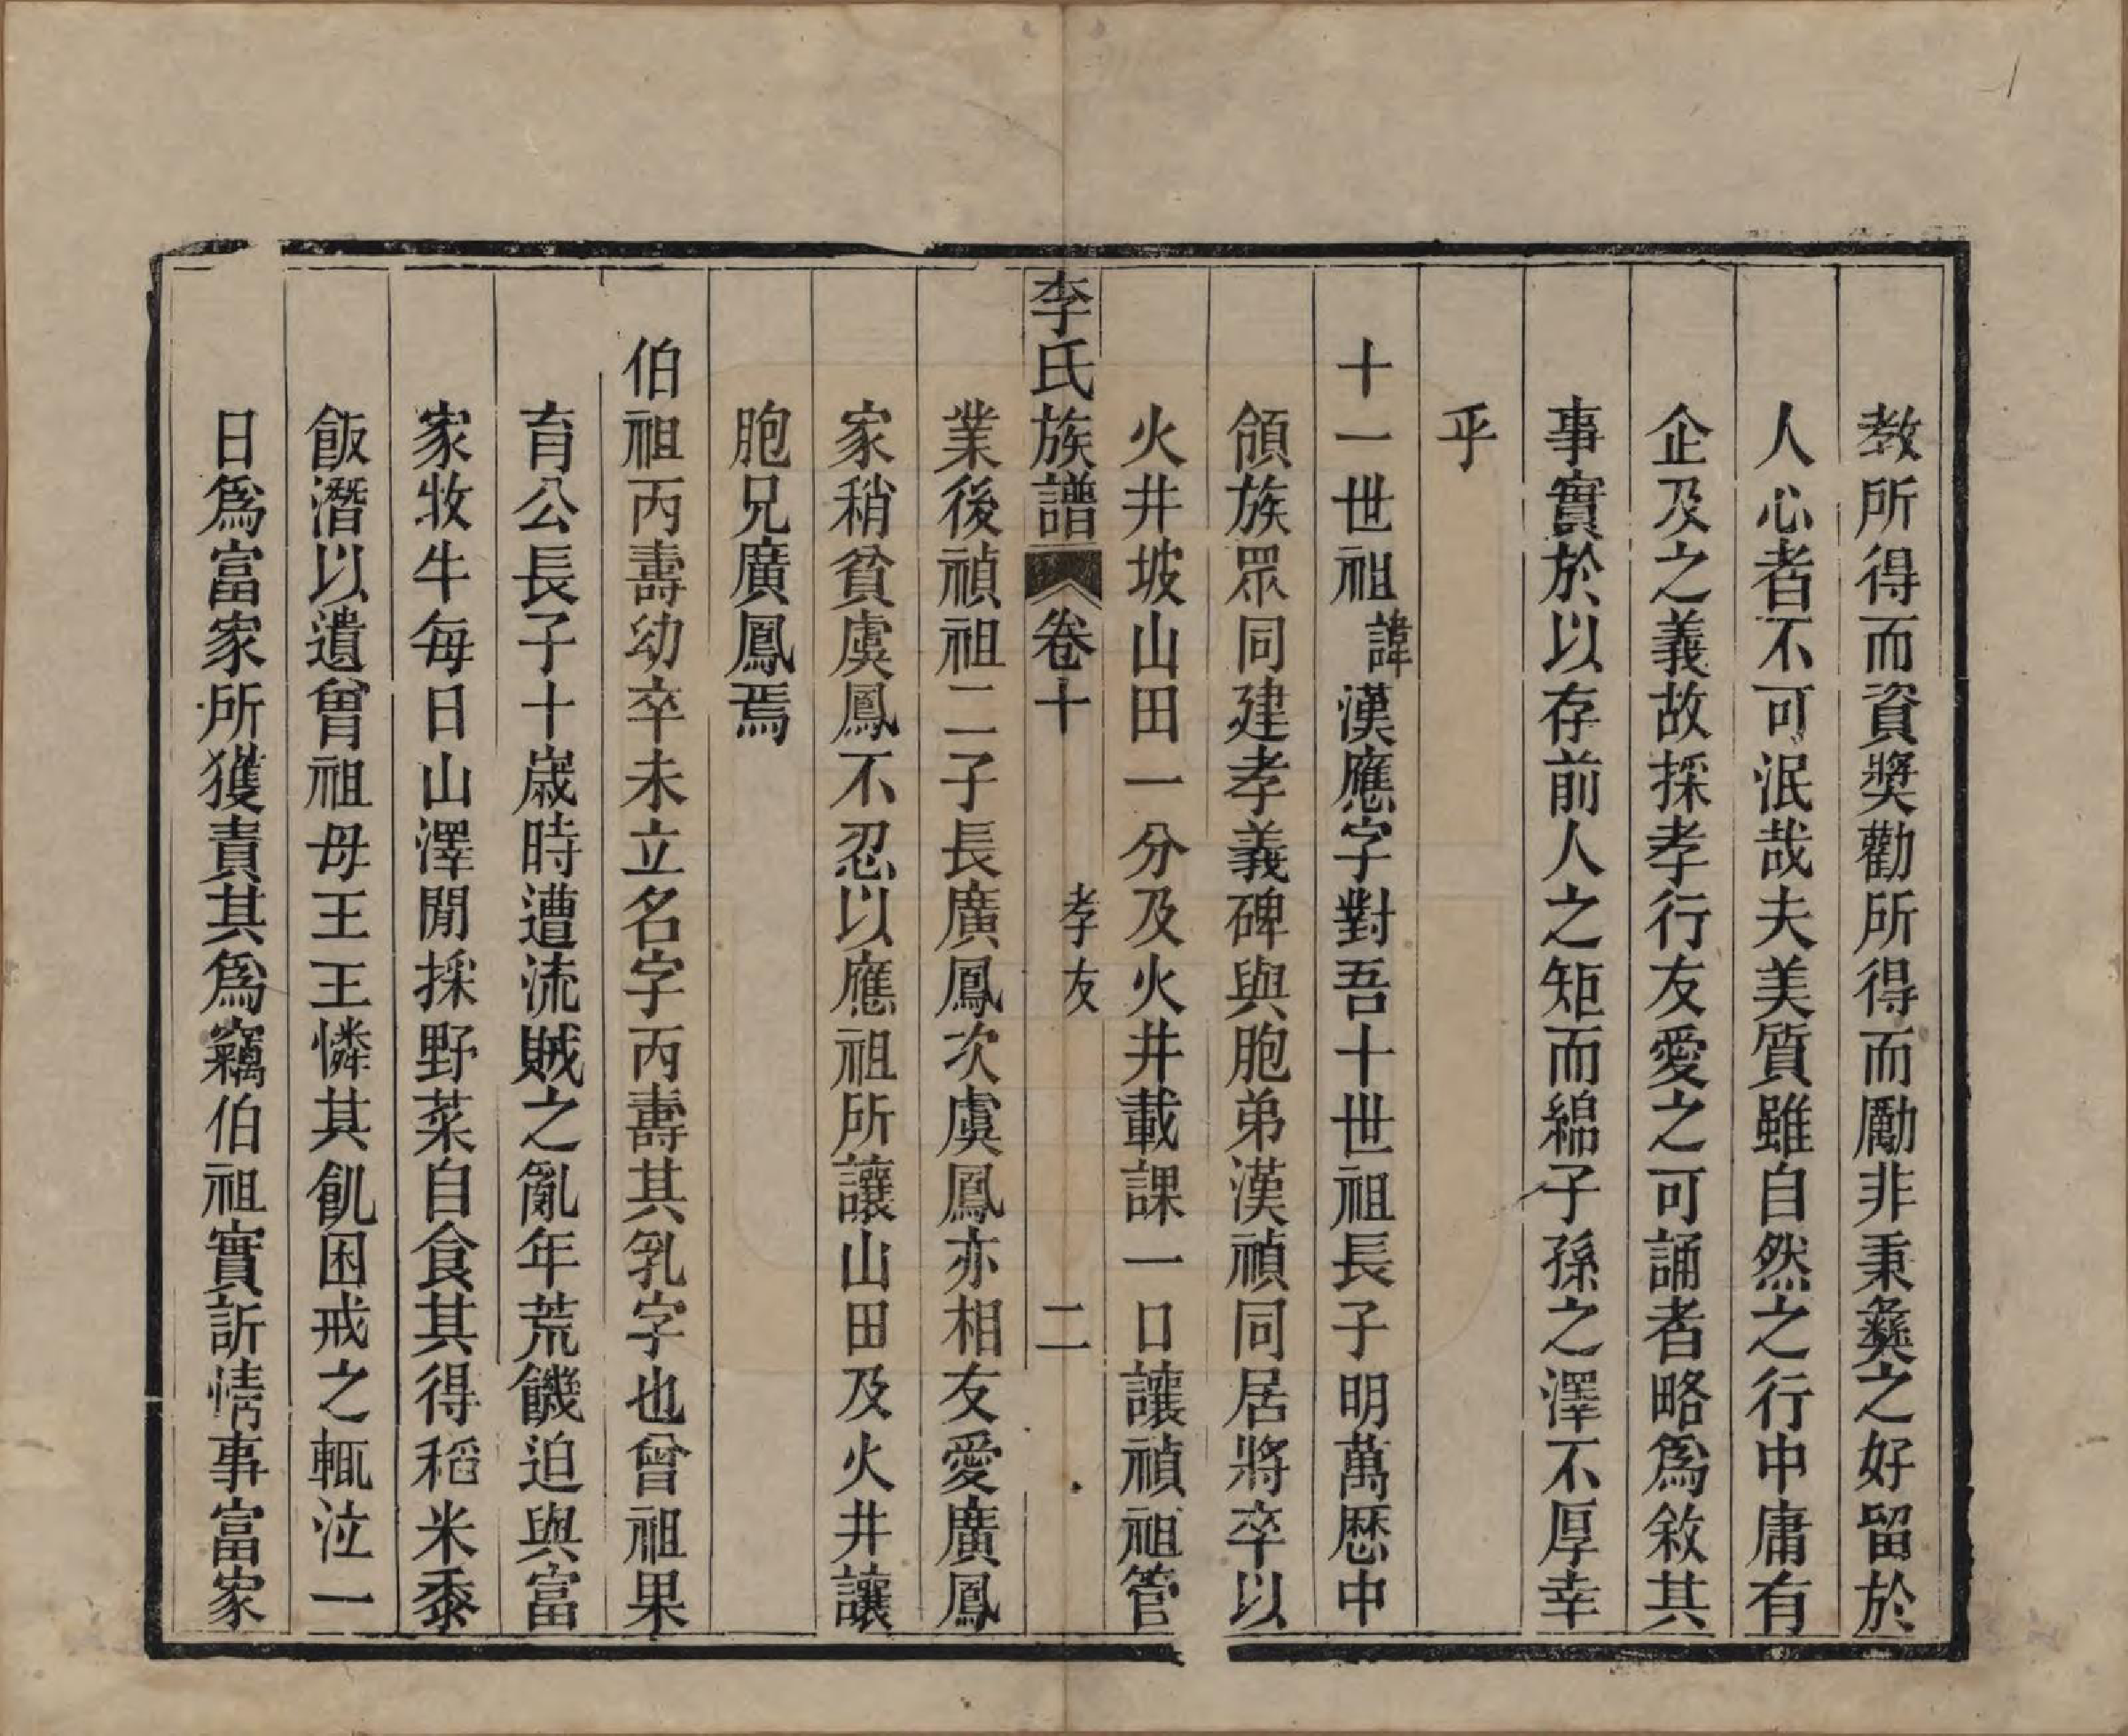 教所得而資奬勸所得而勵非秉彝之好留於
人心者不可泯哉夫美質雖自然之行中庸有
企及之義故採孝行友愛之可誦者略爲敘其
事實於以存前人之矩而綿子孫之澤不厚幸
乎
十一世祖諱漢應字對吾十世祖長子明萬歷中
領族眾同建孝義碑與胞弟漢禎同居將卒以
火井坡山田一分及火井載課一口讓禎祖管
李氏族譜 卷十 孝友 二
業後禎祖二子長廣鳳次虞鳳亦相友愛廣鳳
家稍貧虞鳳不忍以應祖所讓山田及火井讓
胞兄廣鳳焉
伯祖丙壽幼卒未立名字丙壽其乳字也曾祖果
育公長子十歲時遭流賊之亂年荒饑迫與富
家牧牛每日山澤閒採野菜自食其得稻米黍
飯潛以遺曾祖母王王憐其飢困戒之輒泣一
日爲富家所獲責其爲竊伯祖實訴情事富家